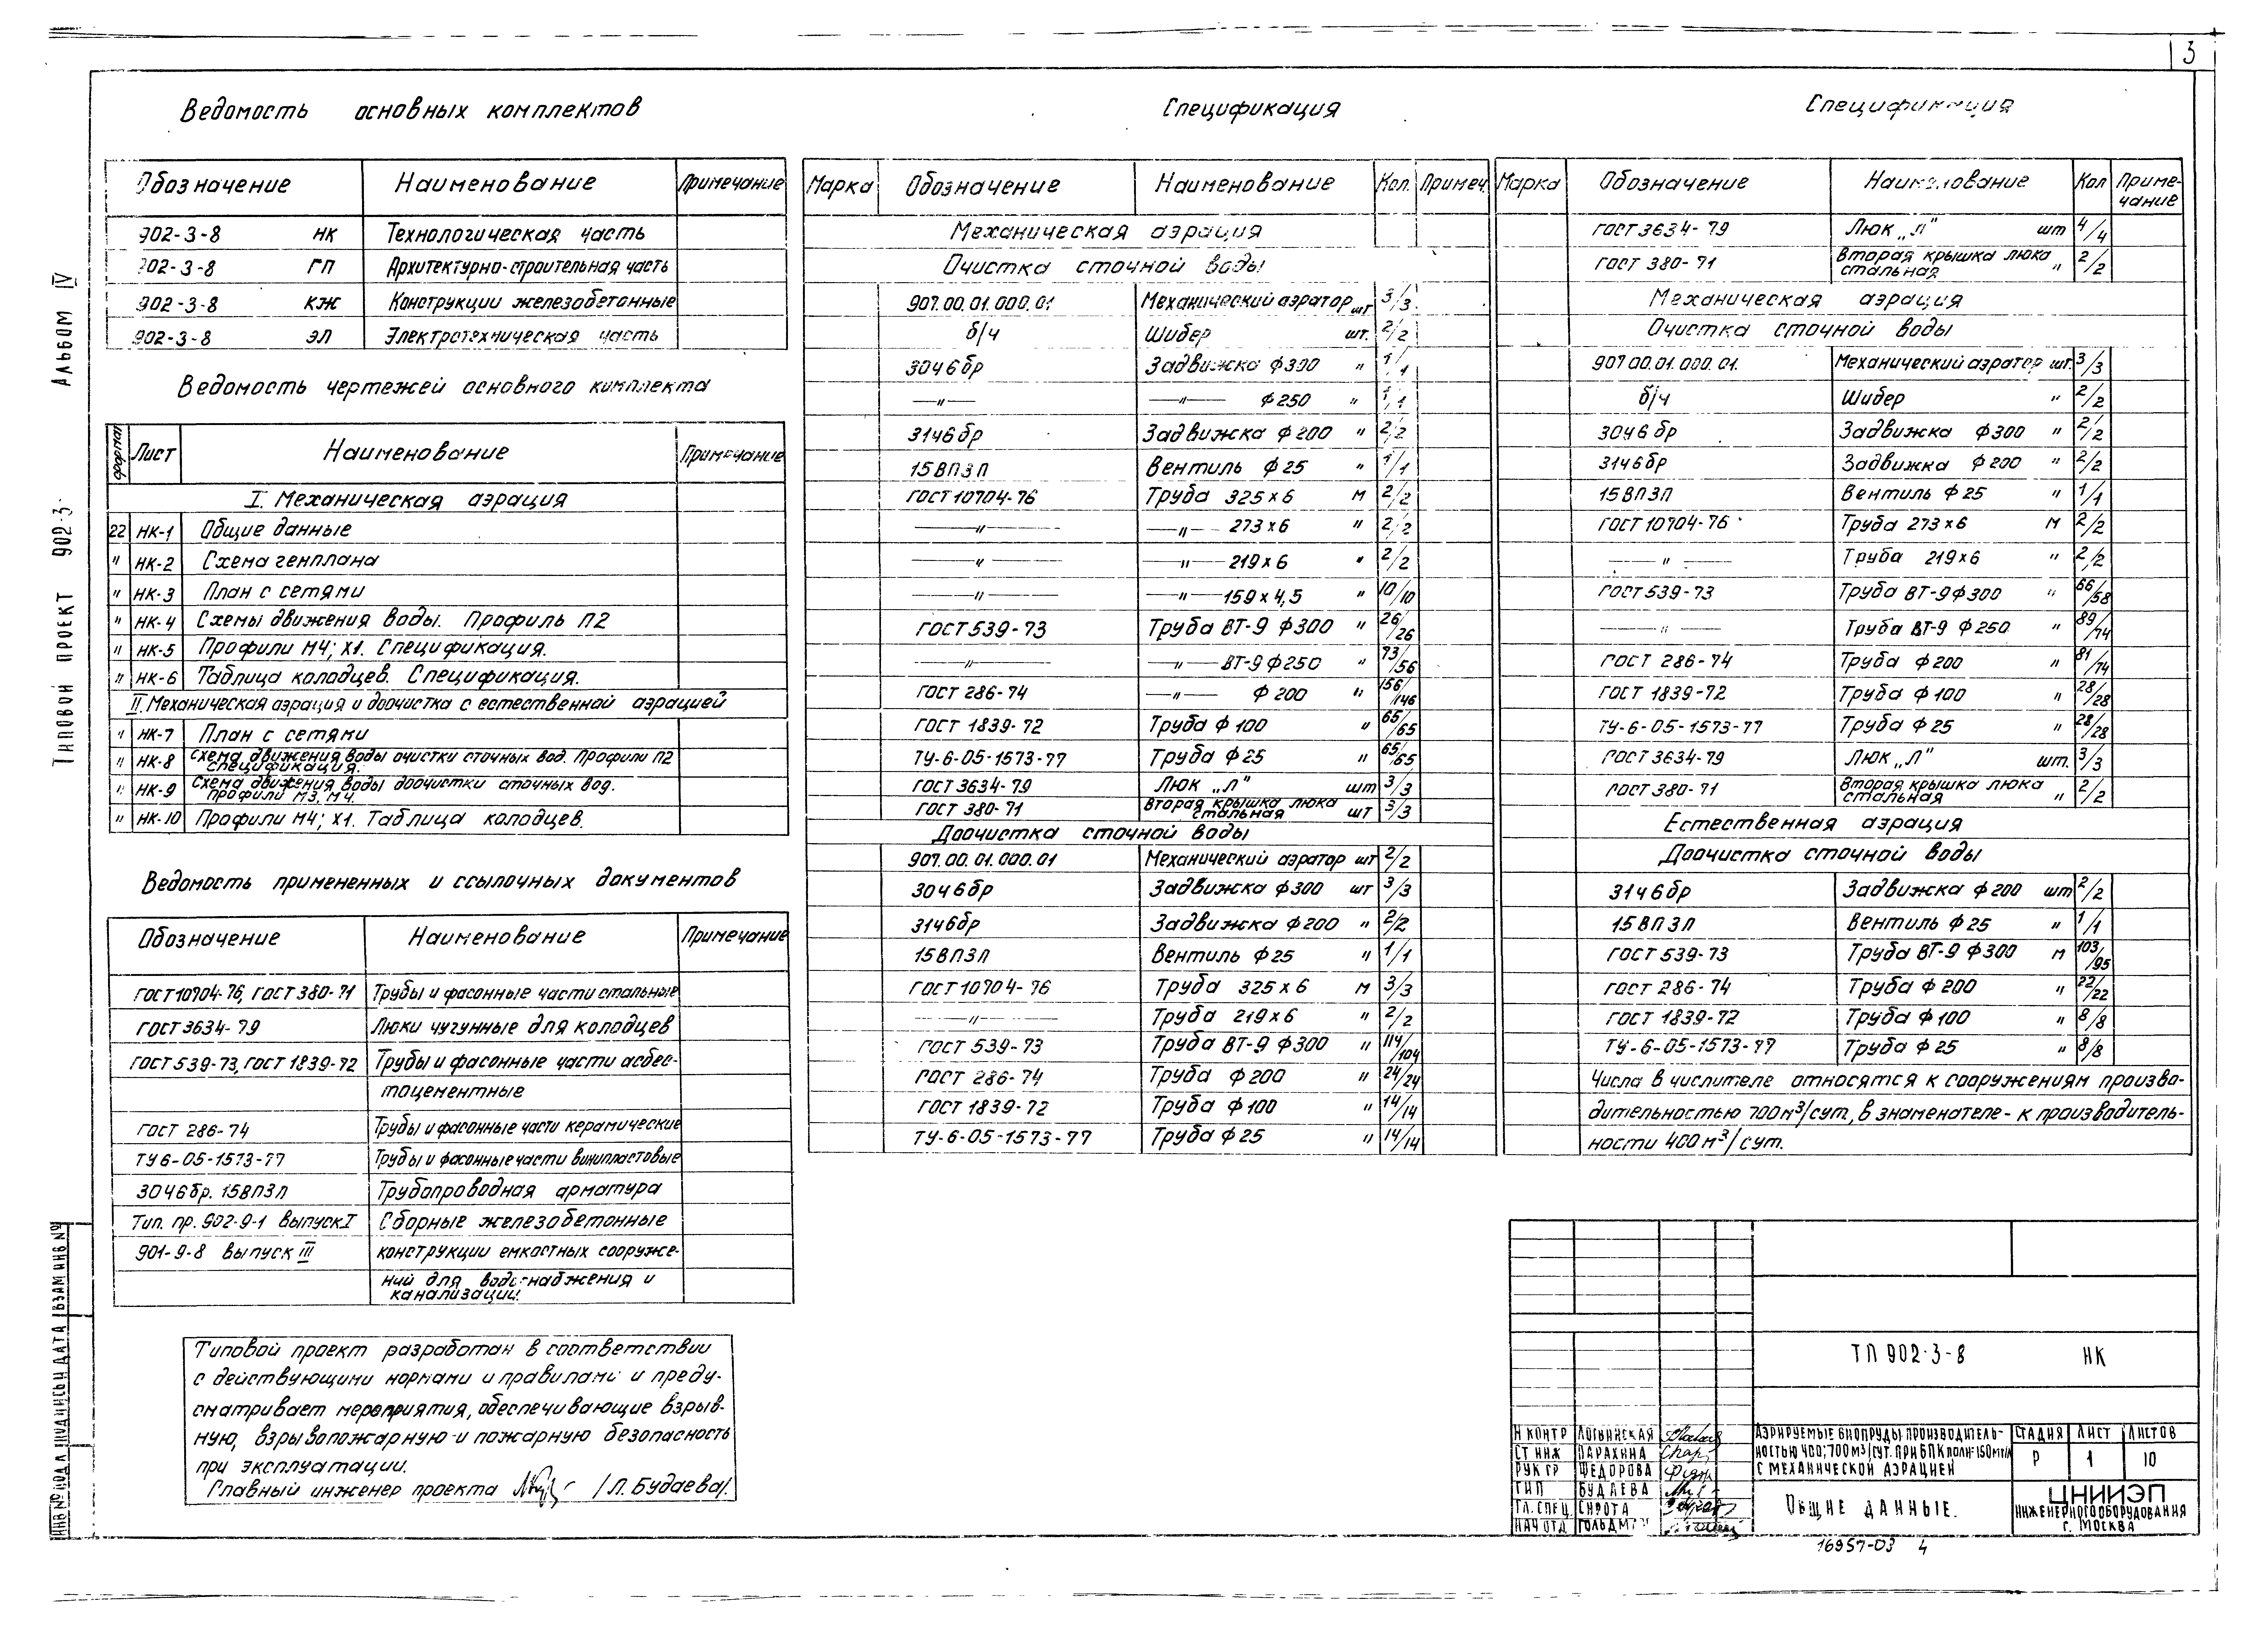 3
Альбом IV
Типовой проект 902-3-
Ведомость основных комплектов
Обозначение Наименование Примечание
902-3-8 НК Технологическая часть
902-3-8 ГП Архитектурно-строительная часть
902-3-8 КЖ Конструкции железобетонные
902-3-8 ЭЛ Электротехническая часть
Ведомость чертежей основного комплекта
формат Лист Наименование Примечание
I. Механическая аэрация
22 НК-1 Общие данные
" НК-2 Схема генплана
" НК-3 План с сетями
" НК-4 Схемы движения воды. Профиль П2
" НК-5 Профили М4; Х1. Спецификация.
" НК-6 Таблица колодцев. Спецификация.
II. Механическая аэрация и доочистка с естественной аэрацией
" НК-7 План с сетями
" НК-8 Схема движения воды очистки сточных вод. Профили П2
спецификация.
" НК-9 Схема движения воды доочистки сточных вод.
профили М3, М4.
" НК-10 Профили М4; Х1. Таблица колодцев.
Ведомость примененных и ссылочных документов
Обозначение Наименование Примечание
ГОСТ 10704-76, ГОСТ 380-71 Трубы и фасонные части стальные
ГОСТ 3634-79 Люки чугунные для колодцев
ГОСТ 539-73, ГОСТ 1839-72 Трубы и фасонные части асбес-
тоцементные
ГОСТ 286-74 Трубы и фасонные части керамические
ТУ 6-05-1573-77 Трубы и фасонные части винипластовые
3046бр. 15ВП3П Трубопроводная арматура
Тип. пр. 902-9-1 выпуск I Сборные железобетонные
901-9-8 выпуск III конструкции емкостных сооруже-
ний для водоснабжения и
канализации.
Типовой проект разработан в соответствии
с действующими нормами и правилами и преду-
сматривает мероприятия, обеспечивающие взрыв-
ную, взрывопожарную и пожарную безопасность
при эксплуатации.
Главный инженер проекта /Л. Будаева/.
Спецификация
Марка Обозначение Наименование Кол. Примеч.
Механическая аэрация
Очистка сточной воды
907.00.01.000.01 Механический аэратор шт 3/3
б/ч Шибер шт. 2/2
3046бр Задвижка ф300 " 1/1
—"— —"— ф250 " 1/1
3146бр Задвижка ф200 " 2/2
15ВП3П Вентиль ф25 " 1/1
ГОСТ 10704-76 Труба 325×6 м 2/2
—"— —"— 273×6 " 2/2
—"— —"— 219×6 " 2/2
—"— —"— 159×4,5 " 10/10
ГОСТ 539-73 Труба ВТ-9 ф300 " 26/26
—"— —"— ВТ-9 ф250 " 73/56
ГОСТ 286-74 —"— ф200 " 156/146
ГОСТ 1839-72 Труба ф100 " 65/65
ТУ-6-05-1573-77 Труба ф25 " 65/65
ГОСТ 3634-79 Люк „Л" шт 3/3
ГОСТ 380-71 Вторая крышка люка
стальная шт 3/3
Доочистка сточной воды
907.00.01.000.01 Механический аэратор шт 2/2
3046бр Задвижка ф300 шт 3/3
3146бр Задвижка ф200 " 2/2
15ВП3П Вентиль ф25 " 1/1
ГОСТ 10704-76 Труба 325×6 м 3/3
—"— Труба 219×6 " 2/2
ГОСТ 539-73 Труба ВТ-9 ф300 " 114/104
ГОСТ 286-74 Труба ф200 " 24/24
ГОСТ 1839-72 Труба ф100 " 14/14
ТУ-6-05-1573-77 Труба ф25 " 14/14
Спецификация
Марка Обозначение Наименование Кол Приме-
чание
ГОСТ 3634-79 Люк „Л" шт 4/4
ГОСТ 380-71 Вторая крышка люка
стальная " 2/2
Механическая аэрация
Очистка сточной воды
907.00.01.000.01. Механический аэратор шт. 3/3
б/ч Шибер " 2/2
3046бр Задвижка ф300 " 2/2
3146бр Задвижка ф200 " 2/2
15ВП3П Вентиль ф25 " 1/1
ГОСТ 10704-76 Труба 273×6 м 2/2
—"— Труба 219×6 " 2/2
ГОСТ 539-73 Труба ВТ-9 ф300 " 66/58
—"— Труба ВТ-9 ф250 " 89/74
ГОСТ 286-74 Труба ф200 " 81/74
ГОСТ 1839-72 Труба ф100 " 28/28
ТУ-6-05-1573-77 Труба ф25 " 28/28
ГОСТ 3634-79 Люк „Л" шт. 3/3
ГОСТ 380-71 Вторая крышка люка
стальная " 2/2
Естественная аэрация
Доочистка сточной воды
3146бр Задвижка ф200 шт 2/2
15ВП3П Вентиль ф25 " 1/1
ГОСТ 539-73 Труба ВТ-9 ф300 м 103/95
ГОСТ 286-74 Труба ф200 " 22/22
ГОСТ 1839-72 Труба ф100 " 8/8
ТУ-6-05-1573-77 Труба ф25 " 8/8
Числа в числителе относятся к сооружениям произво-
дительностью 700м³/сут, в знаменателе - к производитель-
ности 400 м³/сут.
ТП 902-3-8 НК
Н КОНТР ЛОГВИНСКАЯ
СТ ИНЖ ПАРАХИНА
РУК ГР ФЕДОРОВА
ГИП БУДАЕВА
ГЛ. СПЕЦ. СИРОТА
НАЧ ОТД
Аэрируемые биопруды производитель-
ностью 400; 700 м³/сут. при БПК полн-150мг/л
с механической аэрацией
СТАДИЯ ЛИСТ ЛИСТОВ
Р 1 10
Общие данные.
ЦНИИЭП
инженерного оборудования
г. Москва
16957-03 4
ИНВ № ПОДЛ ПОДПИСЬ И ДАТА ВЗАМ ИНВ №